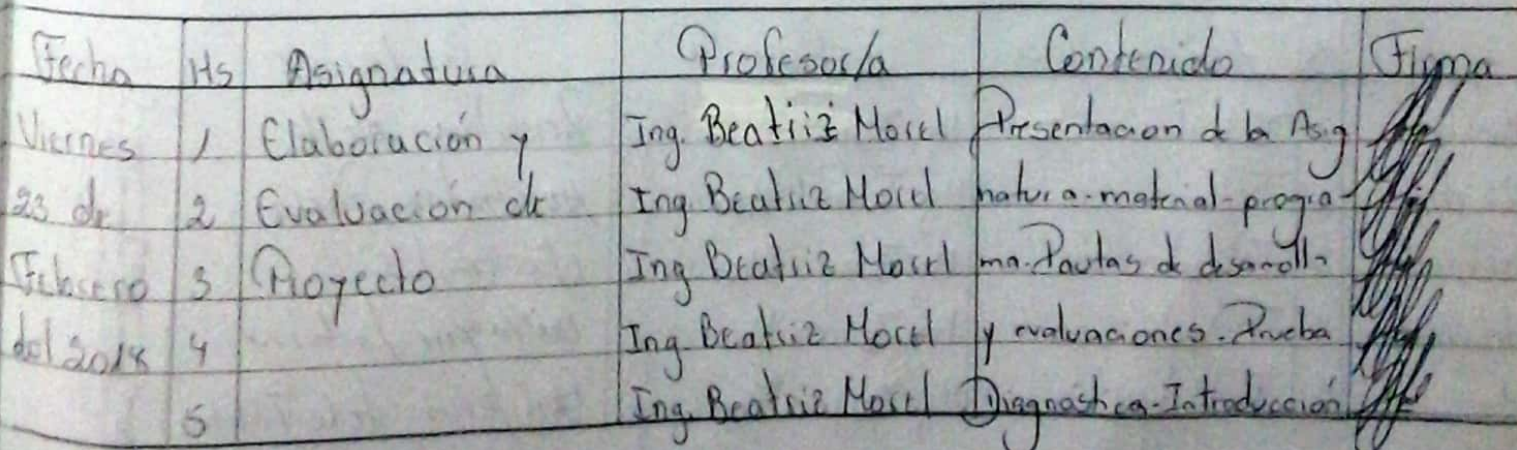 Fecha Hs Asignatura Profesor/a Contenido Firma
Viernes 1 Elaboración y Ing. Beatriz Morel Presentacion de la Asig
23 de 2 Evaluación de Ing Beatriz Morel natura-material-progra-
Febrero 3 Proyecto Ing Beatriz Morel ma. Pautas de desarrollo
del 2018 4 Ing. Beatriz Morel y evaluaciones. Prueba
5 Ing. Beatriz Morel Diagnóstica-Introducción